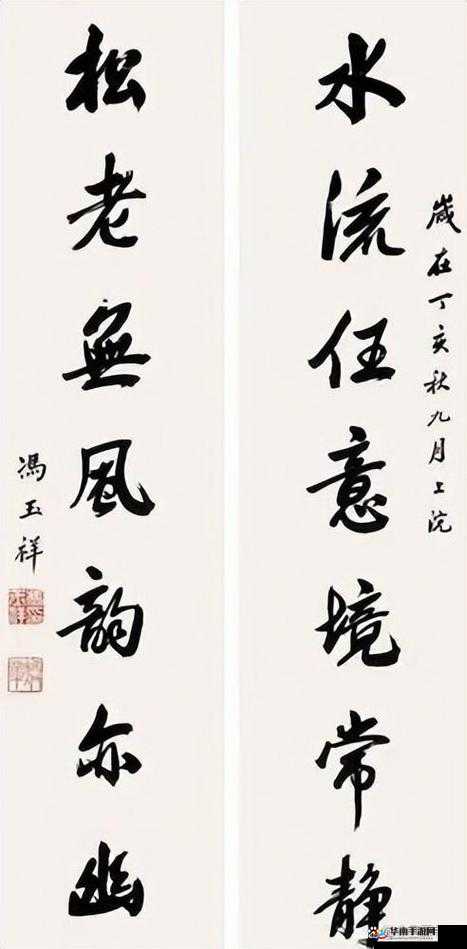 歲在丁亥秋九月上浣
水流任意境常静
松老無風韵亦幽
馮玉祥
华南手游网